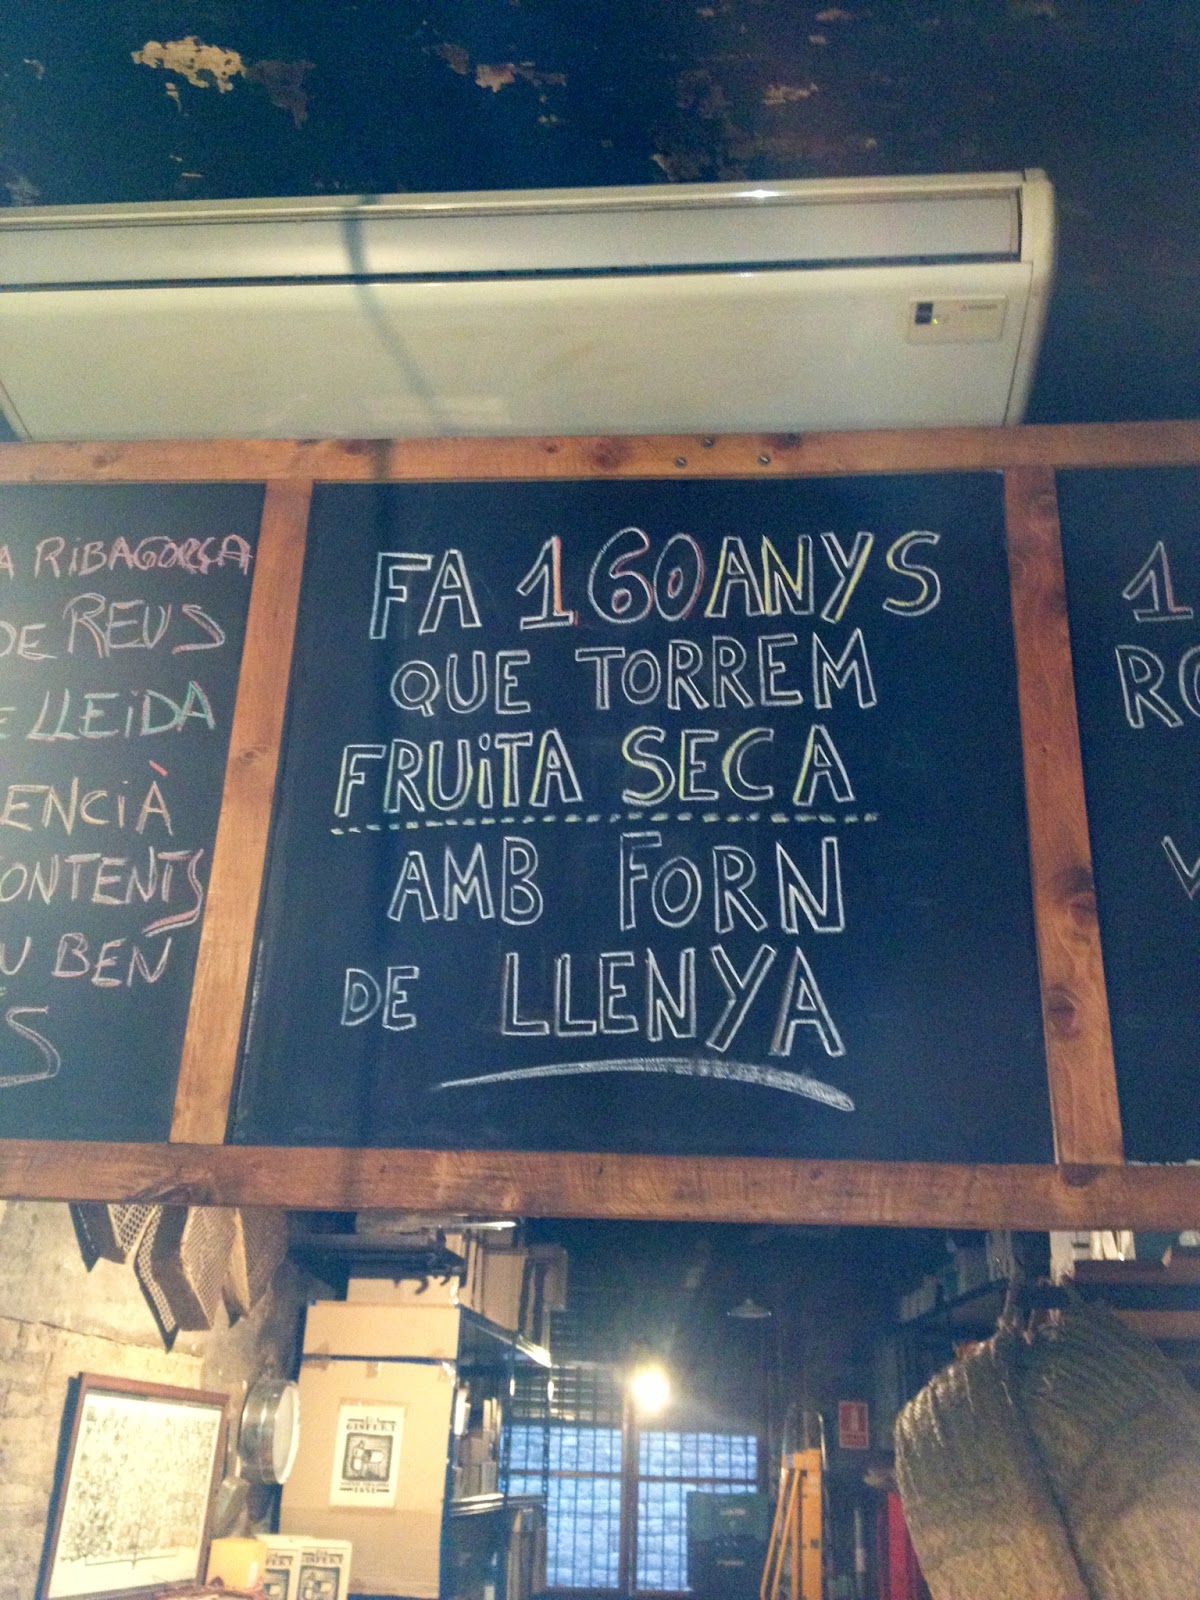 A RIBAGORÇA
DE REUS
E LLEIDA
ENCIÀ
ONTENTS
U BEN
S
FA 160 ANYS
QUE TORREM
FRUiTA SECA
AMB FORN
DE LLENYA
1
RO
V
GISPERT
1851
GISPERT